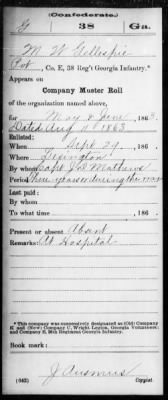 (Confederate.)
G 38 Ga.
M W Gillespie
Pvt, Co. E, 38 Reg't Georgia Infantry.*
Appears on
Company Muster Roll
of the organization named above,
for May & June, 1863.
Dated Aug 1863
Enlisted:
When Sept 29, 186 .
Where Lexington
By whom Capt Mathews
Period three years or during the war
Last paid:
By whom
To what time , 186 .
Present or absent Absent
Remarks: At Hospital
*This company was successively designated as (Old) Company
K and (New) Company C, Wright Legion, Georgia Volunteers and
Company E, 38th Regiment Georgia Infantry.
Book mark:
(642) Copyist.